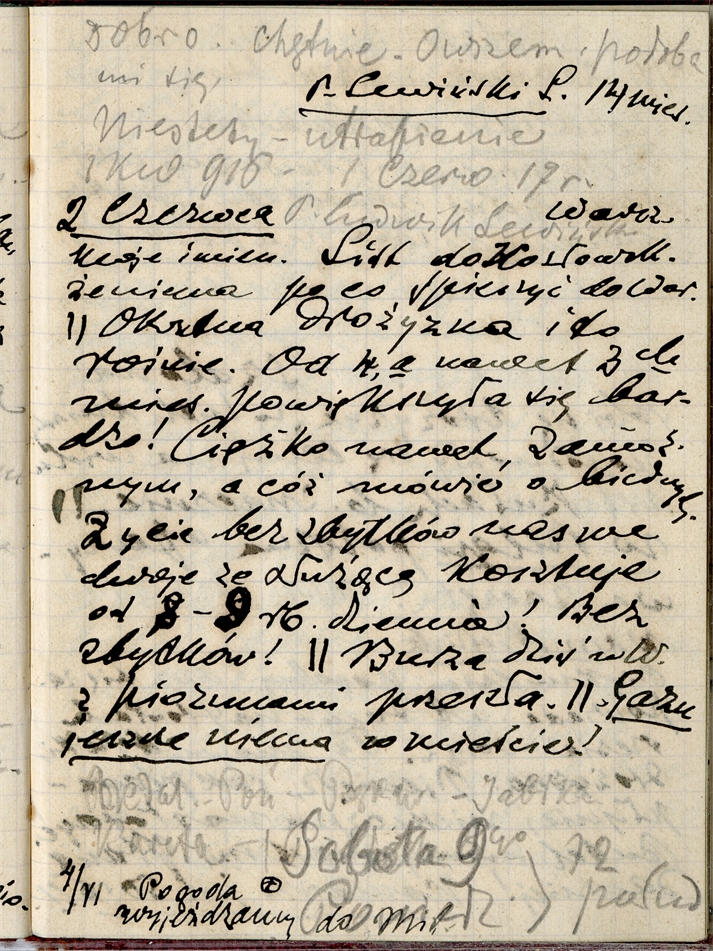 Dobro. Chętnie. Owszem, podoba
mi się,
P. Lewiński L. 14 mies.
Niestety - utrapienie
1 Czerw. 17 r.
2 Czerwca P. Ludwik Lewiński Warsz.
Moje imien. List do Kozłowsk.
po co spieszyć do War.
|| Okrutna drożyzna i to
rośnie. Od 4, a nawet 3ch
mies. powiększyła się bar-
dzo! Ciężko nawet zamoż-
nym, a cóż mówić o biednych.
|| Życie bez zbytków nas we
dwoje ze służącą kosztuje
od 8 - 9 rb. dziennie! Bez
zbytków! || Burza dziś w W.
z piorunami przeszła. || Gazu
jeszcze niema w mieście!
Kareta - Sobota 9go 72
4/VI Pogoda
wyjeżdżamy do Mił.